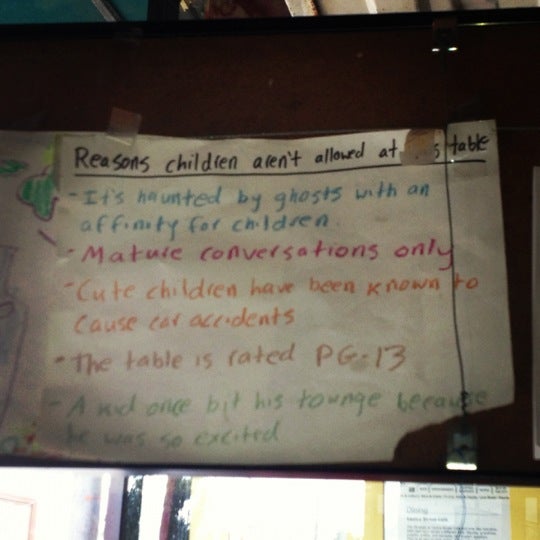 Reasons children aren't allowed at s table
- It's haunted by ghosts with an
affinity for children
- Mature conversations only
- Cute children have been known to
cause car accidents
- The table is rated PG-13
- A kid once bit his tounge because
he was so excited
Dining